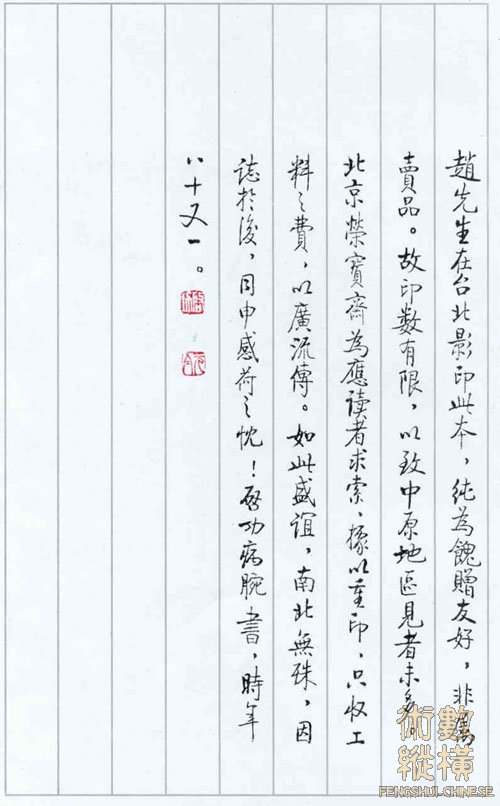 趙先生在台北影印此本，純為餽贈友好，非屬
賣品。故印数有限，以致中原地區見者未多。
北京榮寳齋為應读者求索，據以重印，只收工
料之費，以廣流傳。如此盛誼，南北無殊，因
誌於後，同申感荷之忱！啓功病腕書，時年
八十又一。
術數
縱橫
FENGSHUI-CHINESE